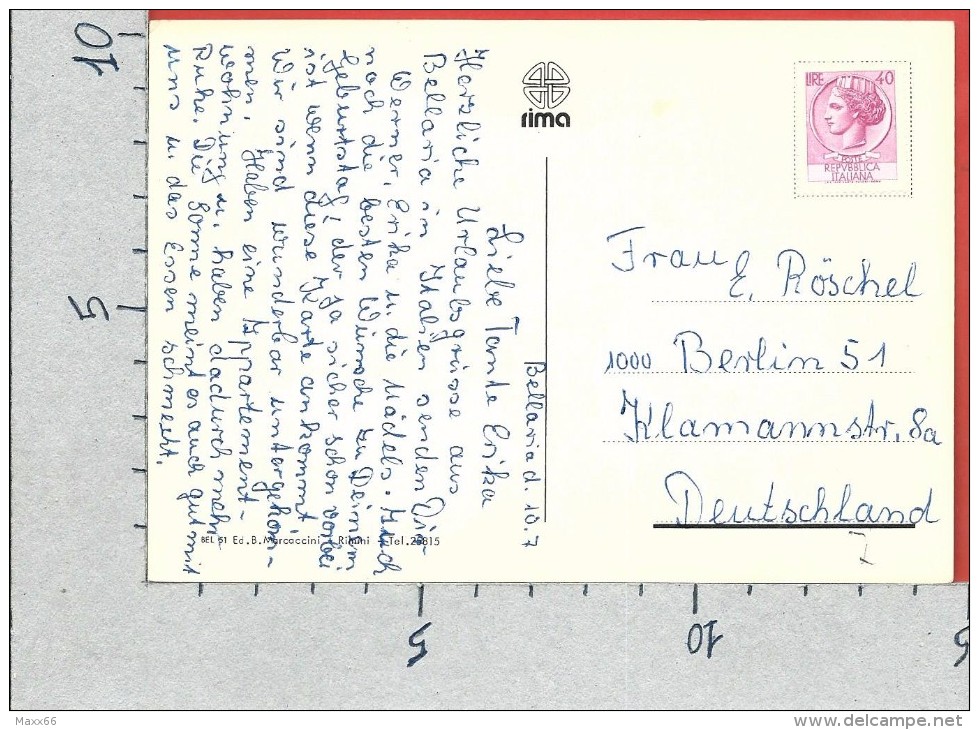 Bellaria d. 10.7
Liebe Tante Erika
Herzliche Urlaubsgrüsse aus
Bellaria in Italien senden Dir
Werner, Erika u. die Mädels. Auch
noch die besten Wünsche zu Deinem
Geburtstag, der ja sicher schon vorbei
ist wenn diese Karte ankommt.
Wir sind wunderbar untergekom-
men. Haben eine Appartement-
wohnung u. haben dadurch mehr
Ruhe. Die Sonne meint es auch gut mit
uns u. das Essen schmeckt.
BEL 51 Ed. B. Marcaccini - Rimini - Tel. 25815
rima
LIRE 40
POSTE
REPVBBLICA
ITALIANA
Frau E. Röschel
1000 Berlin 51
Klamannstr. 8a
Deutschland
10
5
5
10
5
Maxx66
www.delcampe.net